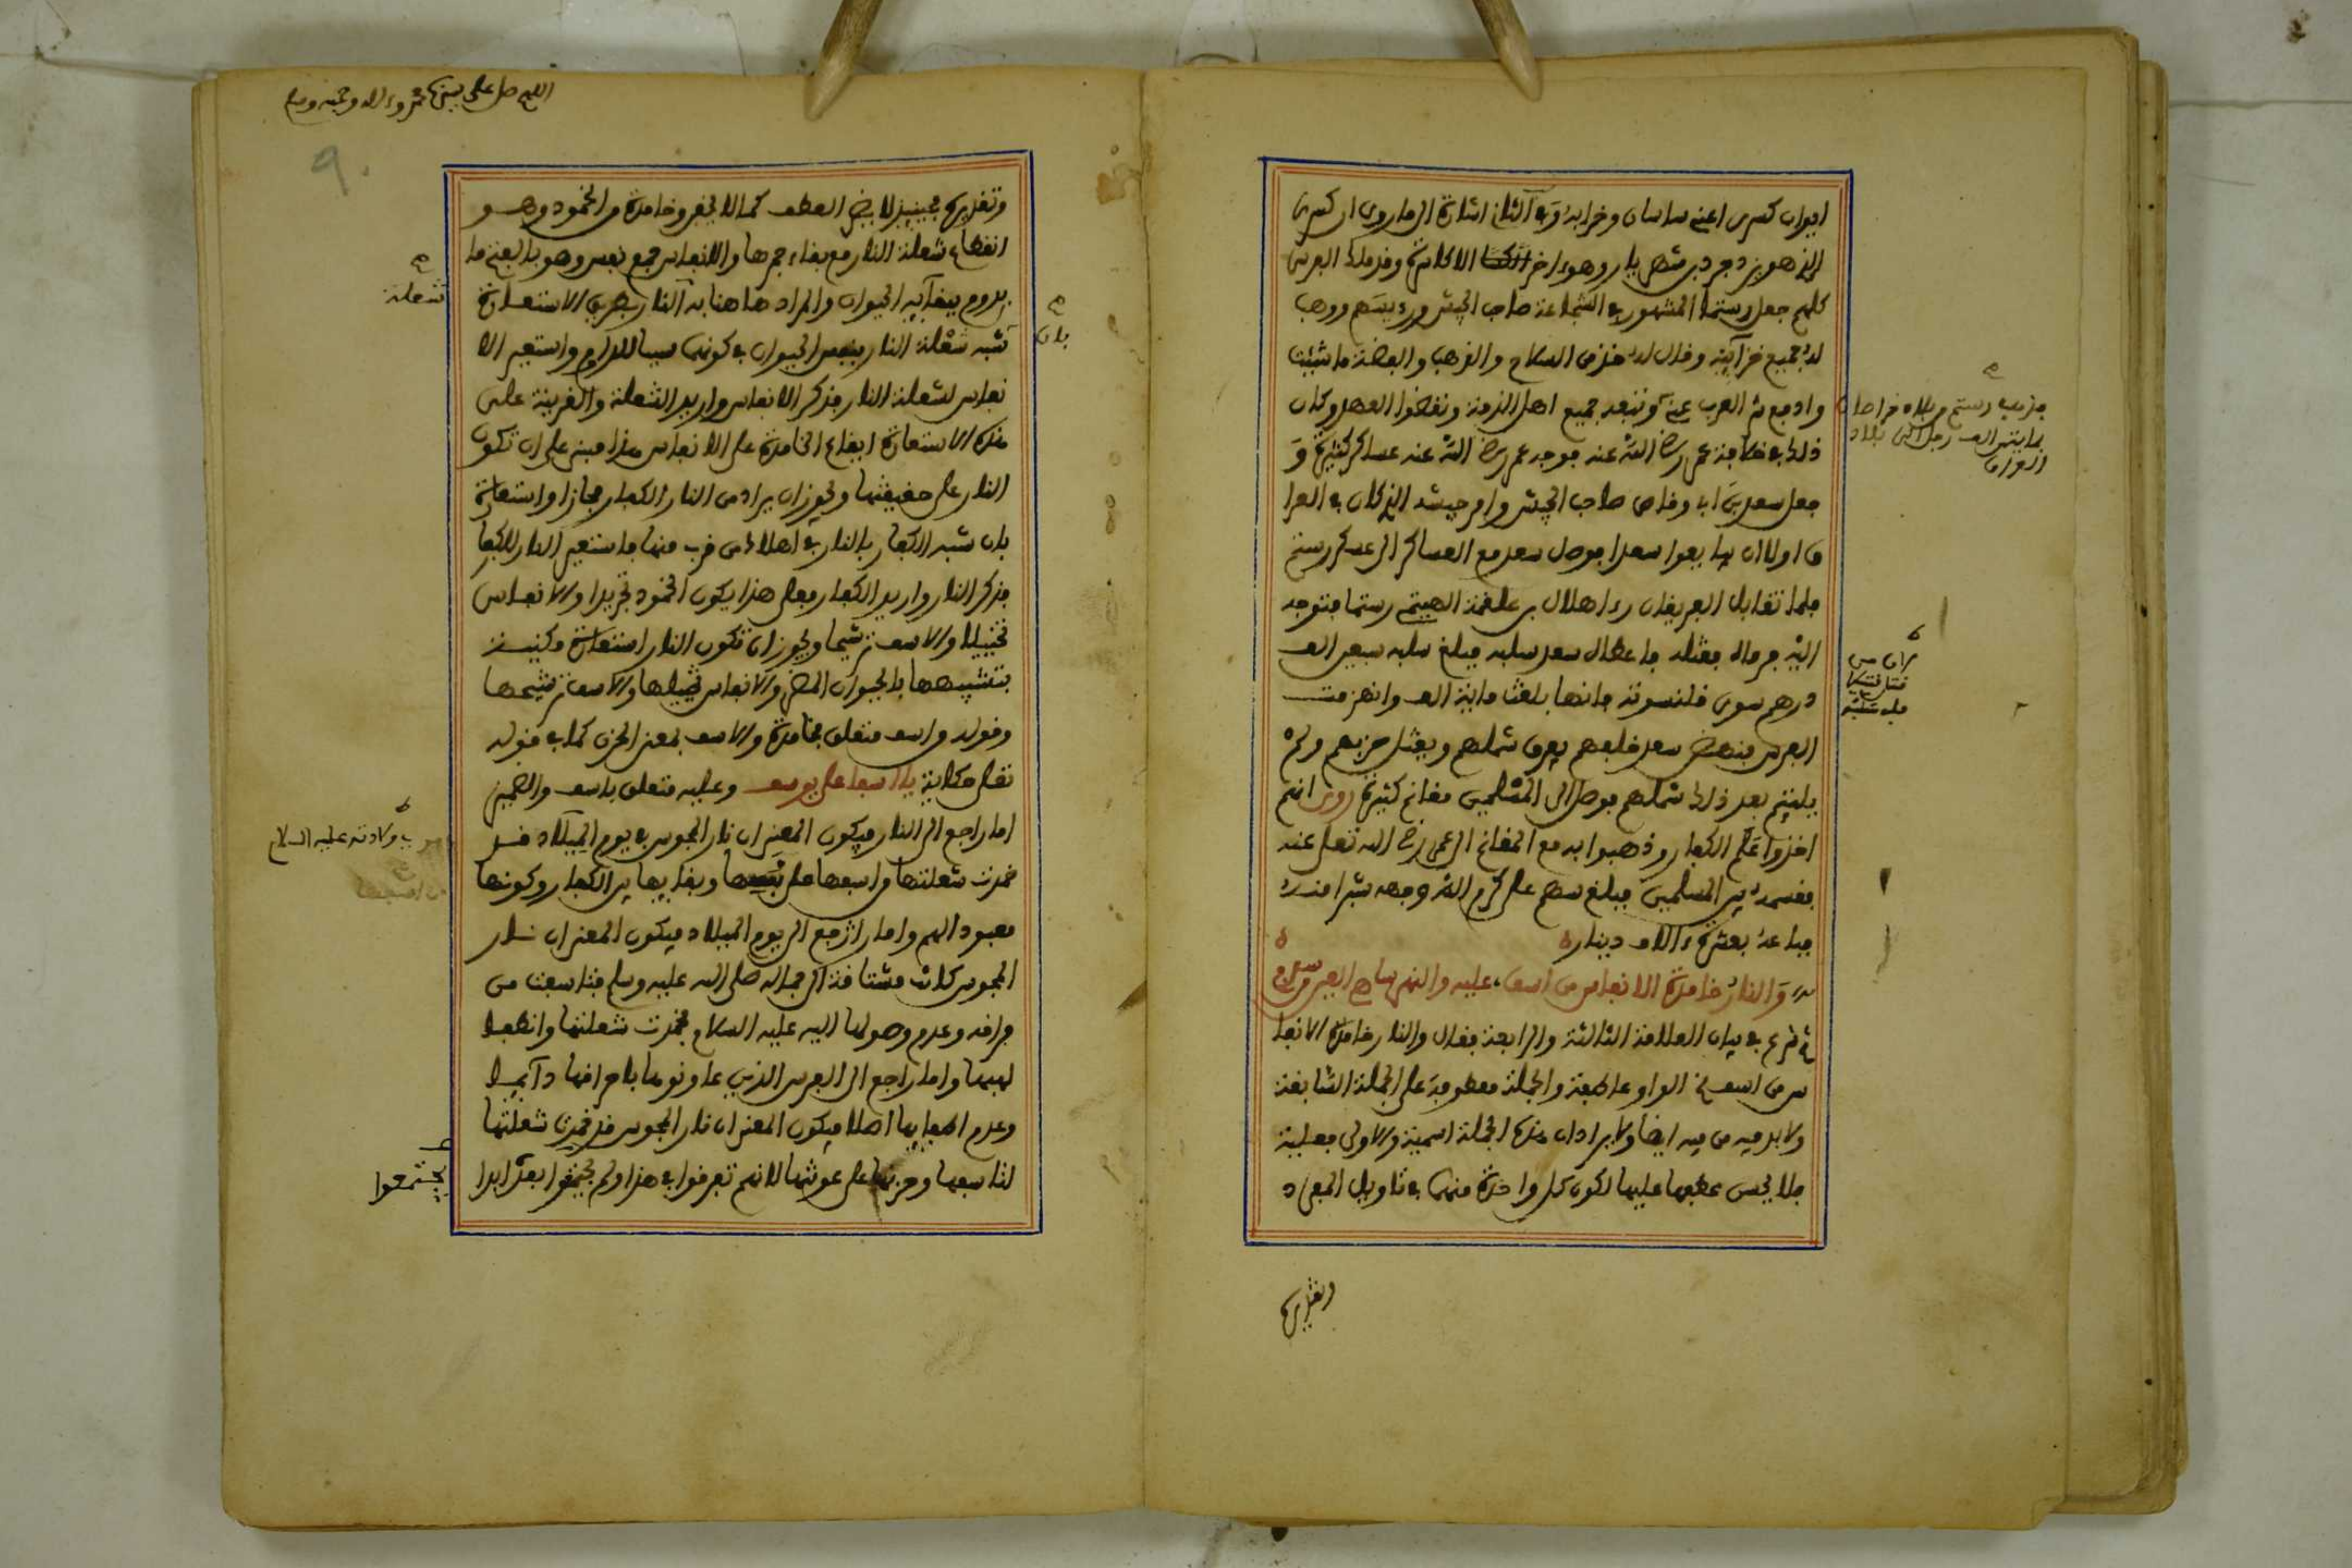 ايوان كسرى اعنے ساسان وخرابه وفى الثان اشارة الى ما روى ان كسرى
الذى هو يزدجرد بن شهريار وهو ءاخر الاكاسرة وقد ملك الفرس
كلهم جعل رستما المشهور في الشجاعة صاحب الجيش ورءيسهم ووهب
له جميع خزآينه وقال له خذ من السلاح والذهب والفضة ما شئت
وادفع شر العرب عنے ونبعد جميع اهل الذمة ونقضوا العهد وكان
ذلك في خلافة عمر رضے الله عنه فوجه عمر رضے الله عنه عساكر كثيرة و
جعل سعد بن ابى وقاص صاحب الجيش وامر جيشه الذى كان في العرا
ق اولا ان يبايعوا سعدا فوصل سعد مع العساكر الى عسكر رستم
فلما تقابل الفريقان رءا هلال بن علقمة رستما فتوجه
اليه فقتله فاعطاه سعد سلبه فبلغ سلبه سبعين الف
درهم سوى قلنسوته فانها بلغت ماية الف وانهزمت
الفرس فنهض سعد خلفهم يفرق شملهم ويقتل حزبهم ولم
يلتيم بعد ذلك شملهم فوصل الى المسلمين مغانم كثيرة روى انهم
اخذوا علم الكفار وذهبوا به مع المغانم الى عمر رضے الله تعلى عنه
فقسمه بين المسلمين فبلغ سهم على كرم الله وجهه شبرا منه
فباعه بعشرة ءالاف دينار
والنار خامدة الانفاس من اسف عليه والنهر ساهى العين من سدم
شرع في بيان العلامة الثالثة والرابعة فقال والنار خامدة الانفا
س من اسف الواو عاطفة والجملة معطوفة على الجملة السابقة
ولا بد فيه من فيه ايضا ولا يراد ان هذه الجملة اسمية والاولى فعلية
فلا يحسن عطفها عليها لكون كل واحدة منهما في تاويل المفرد
وتقديره
فذهب رستم من بلاد خراسان
بمايتى الف رجل الى بلاد
العراق
من قتل قتيلا
فله سلبه
اللهم صل على سيدنا محمد وءاله وصحبه وسلم
٩٠
وتقديره فحينيذ لا يضر العطف كما لا يخفى وخامدة من الخمود وهو
انطفاء شعلة النار مع بقاء جمرها والانفاس جمع نفس وهو بالفتح ما
يدوم ببقآيه الحيوان والمراد هاهنا به النار بطريق الاستعارة
شبه شعلة النار بنفس الحيوان في كونها سببا للدوام واستعير الا
نفاس لشعلة النار فذكر الانفاس واريد الشعلة والقرينة على
هذه الاستعارة ايقاع الخامدة على الانفاس هذا مبنى على ان تكون
النار على حقيقتها ويجوز ان يراد من النار الكفار مجازا واستعارة
بان شبه الكفار بالنار في اهلاك من قرب منها فاستعير النار للكفا
فذكر النار واريد الكفار فعلى هذا يكون الخمود تجريدا والانفاس
تخييلا والاسف ترشيحا ويجوز ان تكون النار استعارة مكنية
بتشبيهها بالحيوان المضر والانفاس تخييلها والاسف ترشيحها
وقوله من اسف متعلق بخامدة والاسف بمعنى الحزن كما في قوله
تعلى حكاية يا اسفا على يوسف وعليه متعلق باسف والضمير
اما راجع الى النار فيكون المعنى ان نار المجوس في يوم الميلاد قد
خمدت شعلتها واسفها على نفسها وبقايها بين الكفار وكونها
معبود الهم واما راجع الى يوم الميلاد فيكون المعنى ان نار
المجوس كانت مشتاقة الى جماله صلى الله عليه وسلم فتاسفت من
فراقه وعدم وصولها اليه عليه السلام فخمدت شعلتها وانطفا
لهبها واما راجع الى الفرس الذين عاونوها باحراقها دآيما
وعدم اطفايها اصلا فيكون المعنى ان نار المجوس قد خمدت شعلتها
لتاسفها وحزنها على عونتها لانهم تفرقوا في هذا ولم يجتمعوا بعد ابدا
شعلة
بان
ولادته عليه السلام
يجتمعوا